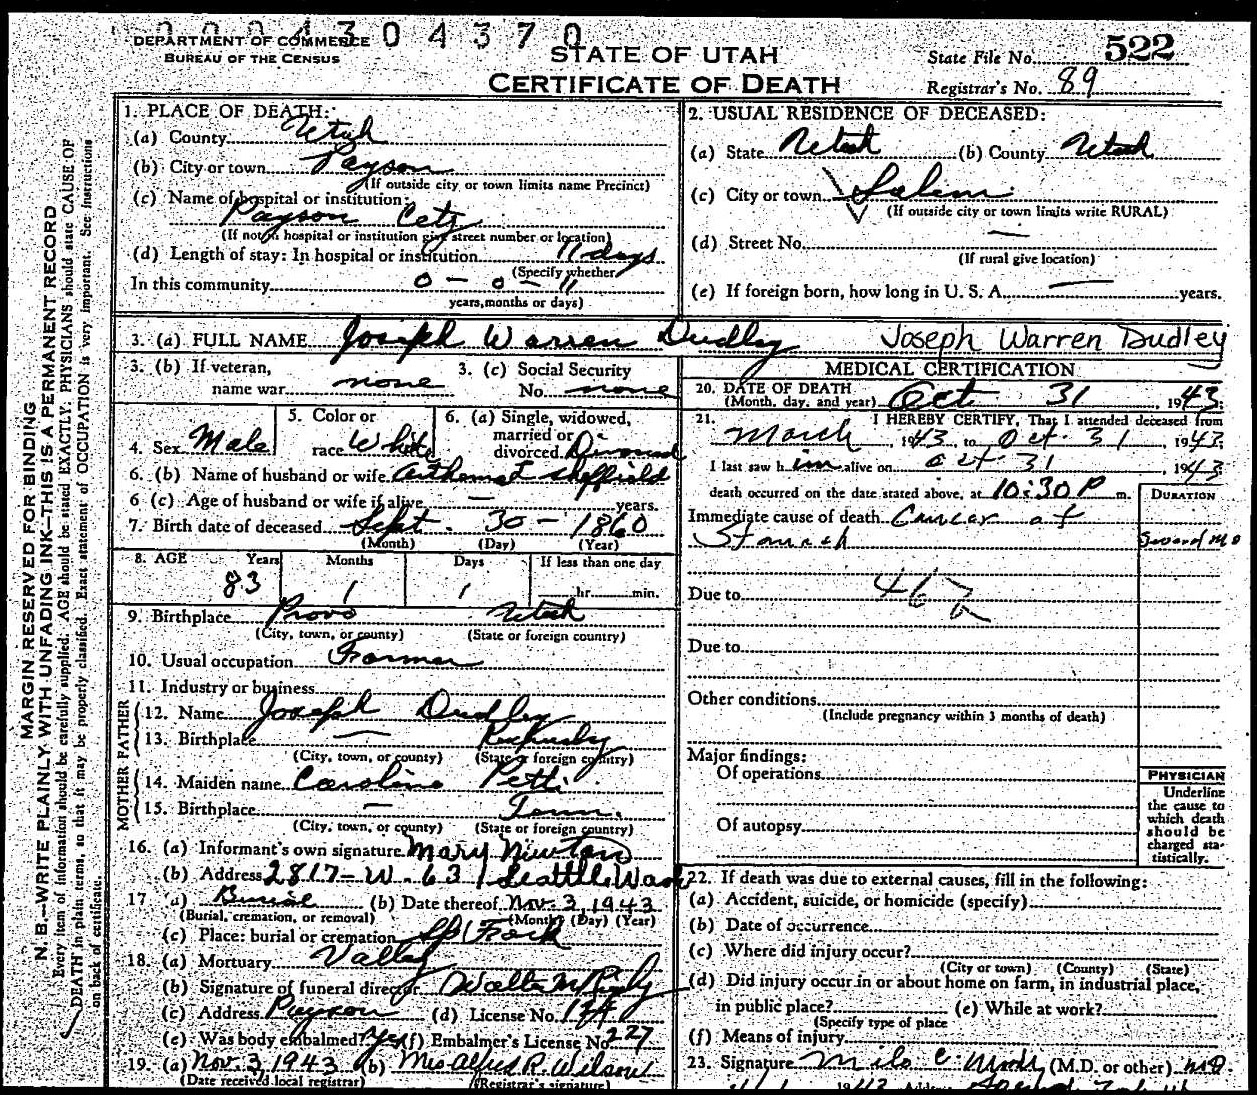 0004304370
DEPARTMENT OF COMMERCE
BUREAU OF THE CENSUS
STATE OF UTAH
CERTIFICATE OF DEATH
State File No. 522
Registrar's No. 89
MARGIN RESERVED FOR BINDING
N. B.—WRITE PLAINLY WITH UNFADING INK—THIS IS A PERMANENT RECORD
Every item of information should be carefully supplied. AGE should be stated EXACTLY. PHYSICIANS should state CAUSE OF
DEATH in plain terms, so that it may be properly classified. Exact statement of OCCUPATION is very important. See instructions
on back of certificate.
1. PLACE OF DEATH:
(a) County Utah
(b) City or town Payson
(If outside city or town limits name Precinct)
(c) Name of hospital or institution:
Payson City
(If not in hospital or institution give street number or location)
(d) Length of stay: In hospital or institution 11 days
(Specify whether
In this community 0 - 0 - 11
years, months or days)
2. USUAL RESIDENCE OF DECEASED:
(a) State Utah (b) County Utah
(c) City or town Salem
(If outside city or town limits write RURAL)
(d) Street No. —
(If rural give location)
(e) If foreign born, how long in U. S. A. — years.
3. (a) FULL NAME Joseph Warren Dudley Joseph Warren Dudley
3. (b) If veteran, name war none
3. (c) Social Security No. none
4. Sex Male
5. Color or race White
6. (a) Single, widowed, married or divorced Divorced
6. (b) Name of husband or wife Sheffield
6 (c) Age of husband or wife if alive — years.
7. Birth date of deceased Sept. 30 - 1860
(Month) (Day) (Year)
8. AGE Years Months Days If less than one day
83 1 1 hr. min.
9. Birthplace Provo Utah
(City, town, or county) (State or foreign country)
10. Usual occupation Farmer
11. Industry or business
FATHER
12. Name Joseph Dudley
13. Birthplace —
(City, town, or county) (State or foreign country)
MOTHER
14. Maiden name Caroline
15. Birthplace — Tenn.
(City, town, or county) (State or foreign country)
16. (a) Informant's own signature Mary Newton
(b) Address 2817 - W. 63 Seattle Wash
17 (a) Burial (b) Date thereof Nov. 3, 1943
(Burial, cremation, or removal) (Month) (Day) (Year)
(c) Place: burial or cremation Sp Fork
18. (a) Mortuary Valley
(b) Signature of funeral director
(c) Address Payson (d) License No.
(e) Was body embalmed? Yes (f) Embalmer's License No. 227
19. (a) Nov. 3, 1943 (b) Mrs Alfred R. Wilson
(Date received local registrar) (Registrar's signature)
MEDICAL CERTIFICATION
20. DATE OF DEATH
(Month, day, and year) Oct 31, 1943
21. I HEREBY CERTIFY, That I attended deceased from
March, 1943, to Oct. 31, 1943
I last saw him alive on Oct 31, 1943
death occurred on the date stated above, at 10:30 P m.
DURATION
Immediate cause of death Cancer of
Stomach
Due to 46
Due to
Other conditions
(Include pregnancy within 3 months of death)
Major findings:
Of operations
Of autopsy
PHYSICIAN
Underline
the cause to
which death
should be
charged sta-
tistically.
22. If death was due to external causes, fill in the following:
(a) Accident, suicide, or homicide (specify)
(b) Date of occurrence
(c) Where did injury occur?
(City or town) (County) (State)
(d) Did injury occur in or about home on farm, in industrial place,
in public place? (e) While at work?
(Specify type of place
(f) Means of injury
23. Signature Milo C. Moody (M.D. or other) MD